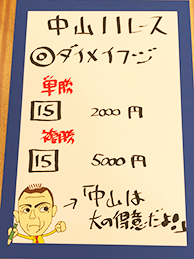 中山11レース
◎ダイメイフージ
単勝
15 2000円
複勝
15 5000円
→「中山は
大の得意だよ」